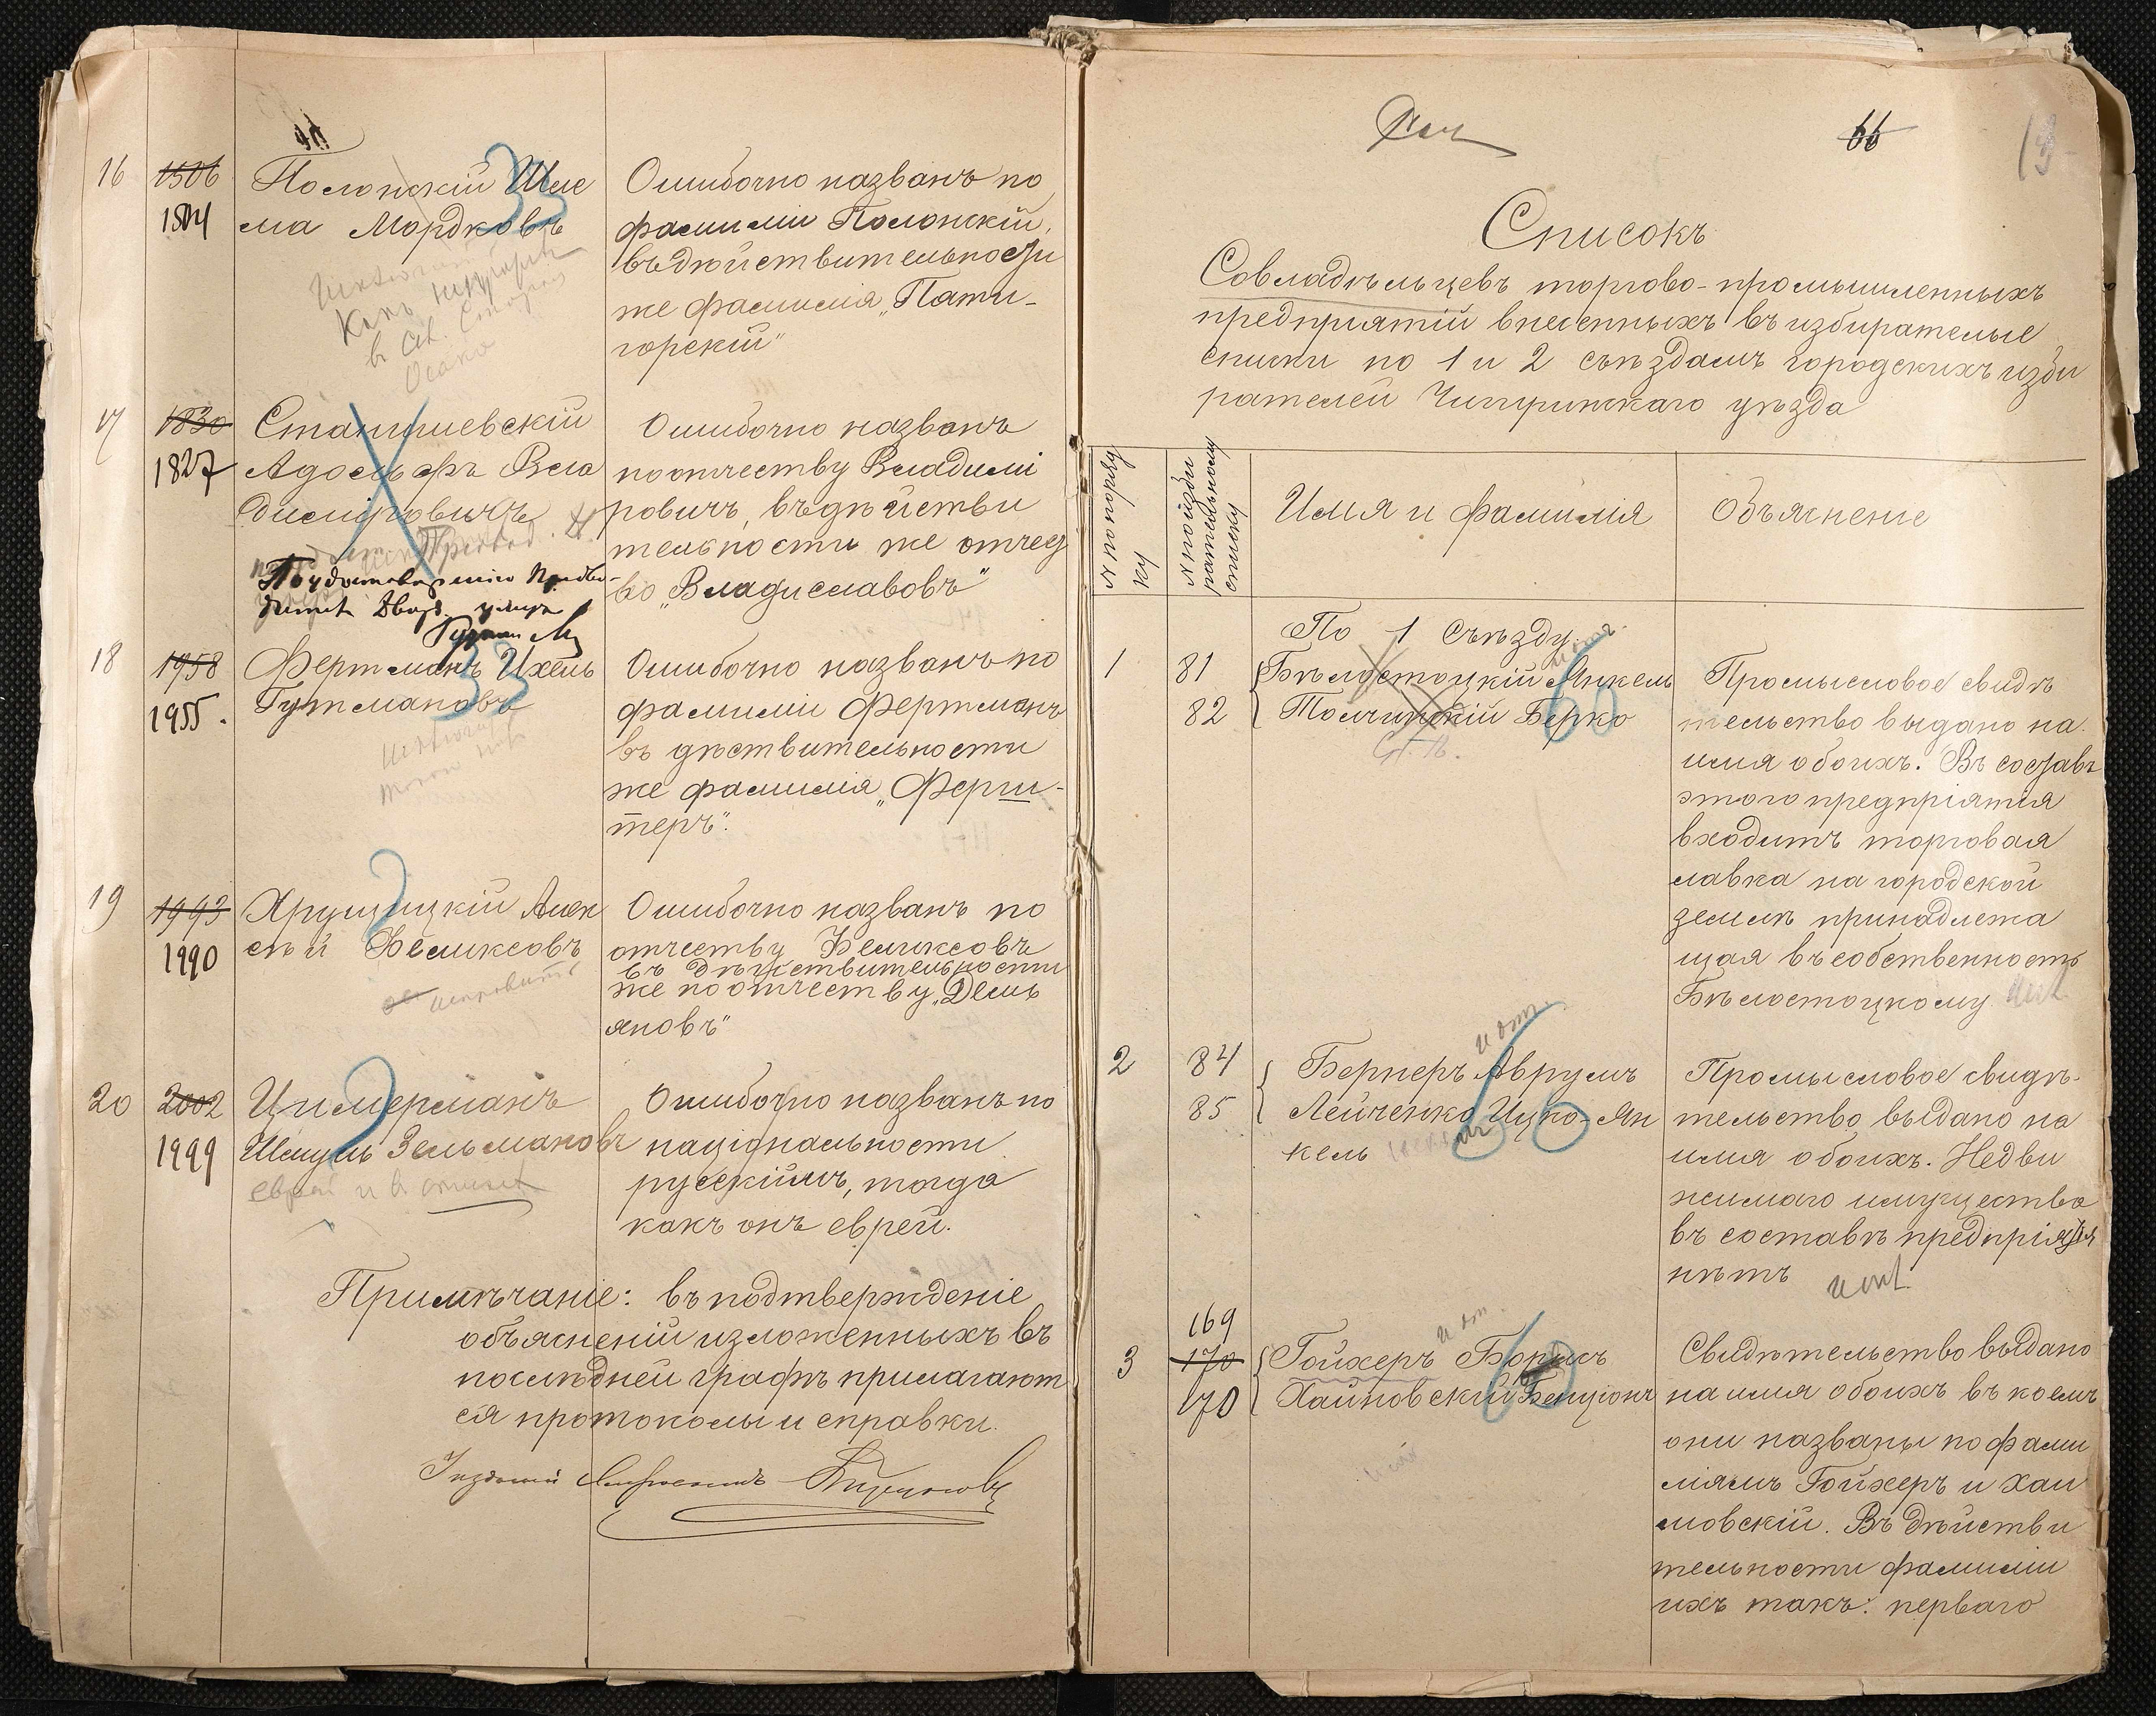 16
1506
1504
Полонскій Шле
ма Мордковъ
Ошибочно названъ по
фамиліи Полонскій,
въ дѣйствительности
же фамилія „Пяти-
горскій"
17
1830
1827
Станишевскій
Адольфъ Вла
диміровичъ
Ошибочно названъ
по отчеству Владимі
ровичъ, въ дѣйстви
тельности же отчест
во „Владиславовъ"
18
1958
1955.
Фертманъ Ихель
Гутмановъ
Ошибочно названъ по
фамиліи Фертманъ
въ дѣствительности
же фамилія „Ферш-
теръ".
19
1993
1990
Хрущицкій Алек
сѣй Феликсовъ
исправить
Ошибочно названъ по
отчеству Феликсовъ
въ дѣйствительности
же по отчеству „Демь
яновъ"
20
2002
1999
Цимерманъ
Шмуль Зельмановъ
еврей
Ошибочно названъ по
національности
русскіимъ, тогда
какъ онъ еврей.
Примѣчаніе: въ подтвержденіе
объясненій изложенныхъ въ
послѣдней графѣ прилагают
ся протоколы и справки.
66
13
Списокъ
Совладѣльцевъ торгово-промышленныхъ
предпріятій внесенныхъ въ избирателые
списки по 1 и 2 съѣздамъ городскихъ изби
рателей Чигиринскаго уѣзда
N по поряд
ку
N по изби
рательному
списку
Имя и фамилія
Объясненіе
По 1 съѣзду.
1
81
82
Бѣлостоцкій Янкель
Толчинскій Берко
Промысловое свидѣ
тельство выдано на
имя обоихъ. Въ составъ
этого предпріятія
входитъ торговая
лавка на городской
землѣ принадлежа
щая въ собственность
Бѣлостоцкому
2
84
85
Бернеръ Аврумъ
Лейченко Ицко-Ян
кель
Промысловое свидѣ-
тельство выдано на
имя обоихъ. Недви
жимаго имущества
въ составѣ предпріятія
нѣтъ
3
169
170
170
Гойхеръ Борысъ
Хаиновскій Бенціонъ
Свидѣтельство выдано
на имя обоихъ въ коемъ
они названы по фами
ліямъ Гойхеръ и Хаи
мовскій. Въ дѣйстви
тельности фамиліи
ихъ такъ: перваго